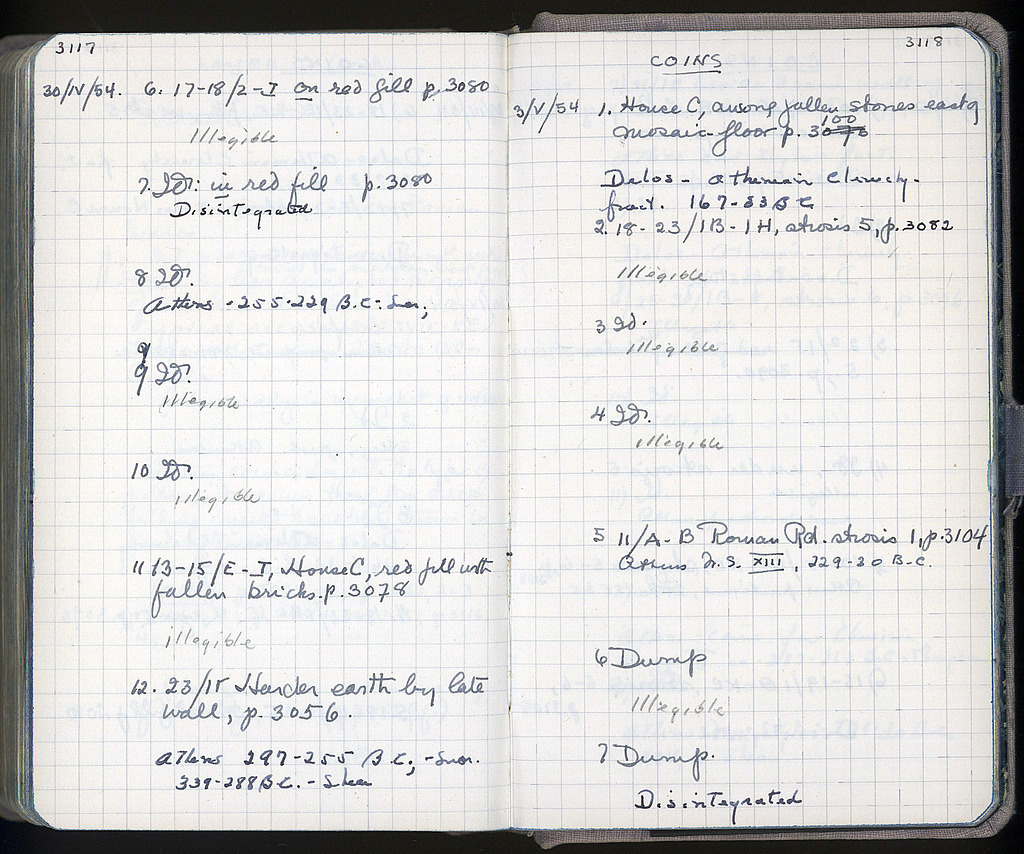 3117
30/IV/54. 6. 17-18/2-I on red fill p. 3080
Illegible
7. Id: in red fill p. 3080
Disintegrated
8 Id.
Athens - 255-229 B.C. - Svor.;
9
9 Id.
Illegible
10 Id.
illegible
11 13-15/E-I, House C, red fill with
fallen bricks. p. 3078
illegible
12. 23/ Harder earth by late
wall, p. 3056.
Athens 297-255 B.C., - Svor.
339-288 B.C. - Shear
3118
COINS
3/V/54 1. House C, among fallen stones east of
mosaic floor p. 30100
Delos - Athenian Cleruchy.
fract. 167-83 B C
2. 18-23/1B-1H, strosis 5, p. 3082
Illegible
3 Id.
Illegible
4 Id.
illegible
5 11/A-B Roman Rd. strosis 1, p. 3104
Athens N.S. XIII, 229-30 B.C.
6 Dump
Illegible
7 Dump.
Disintegrated